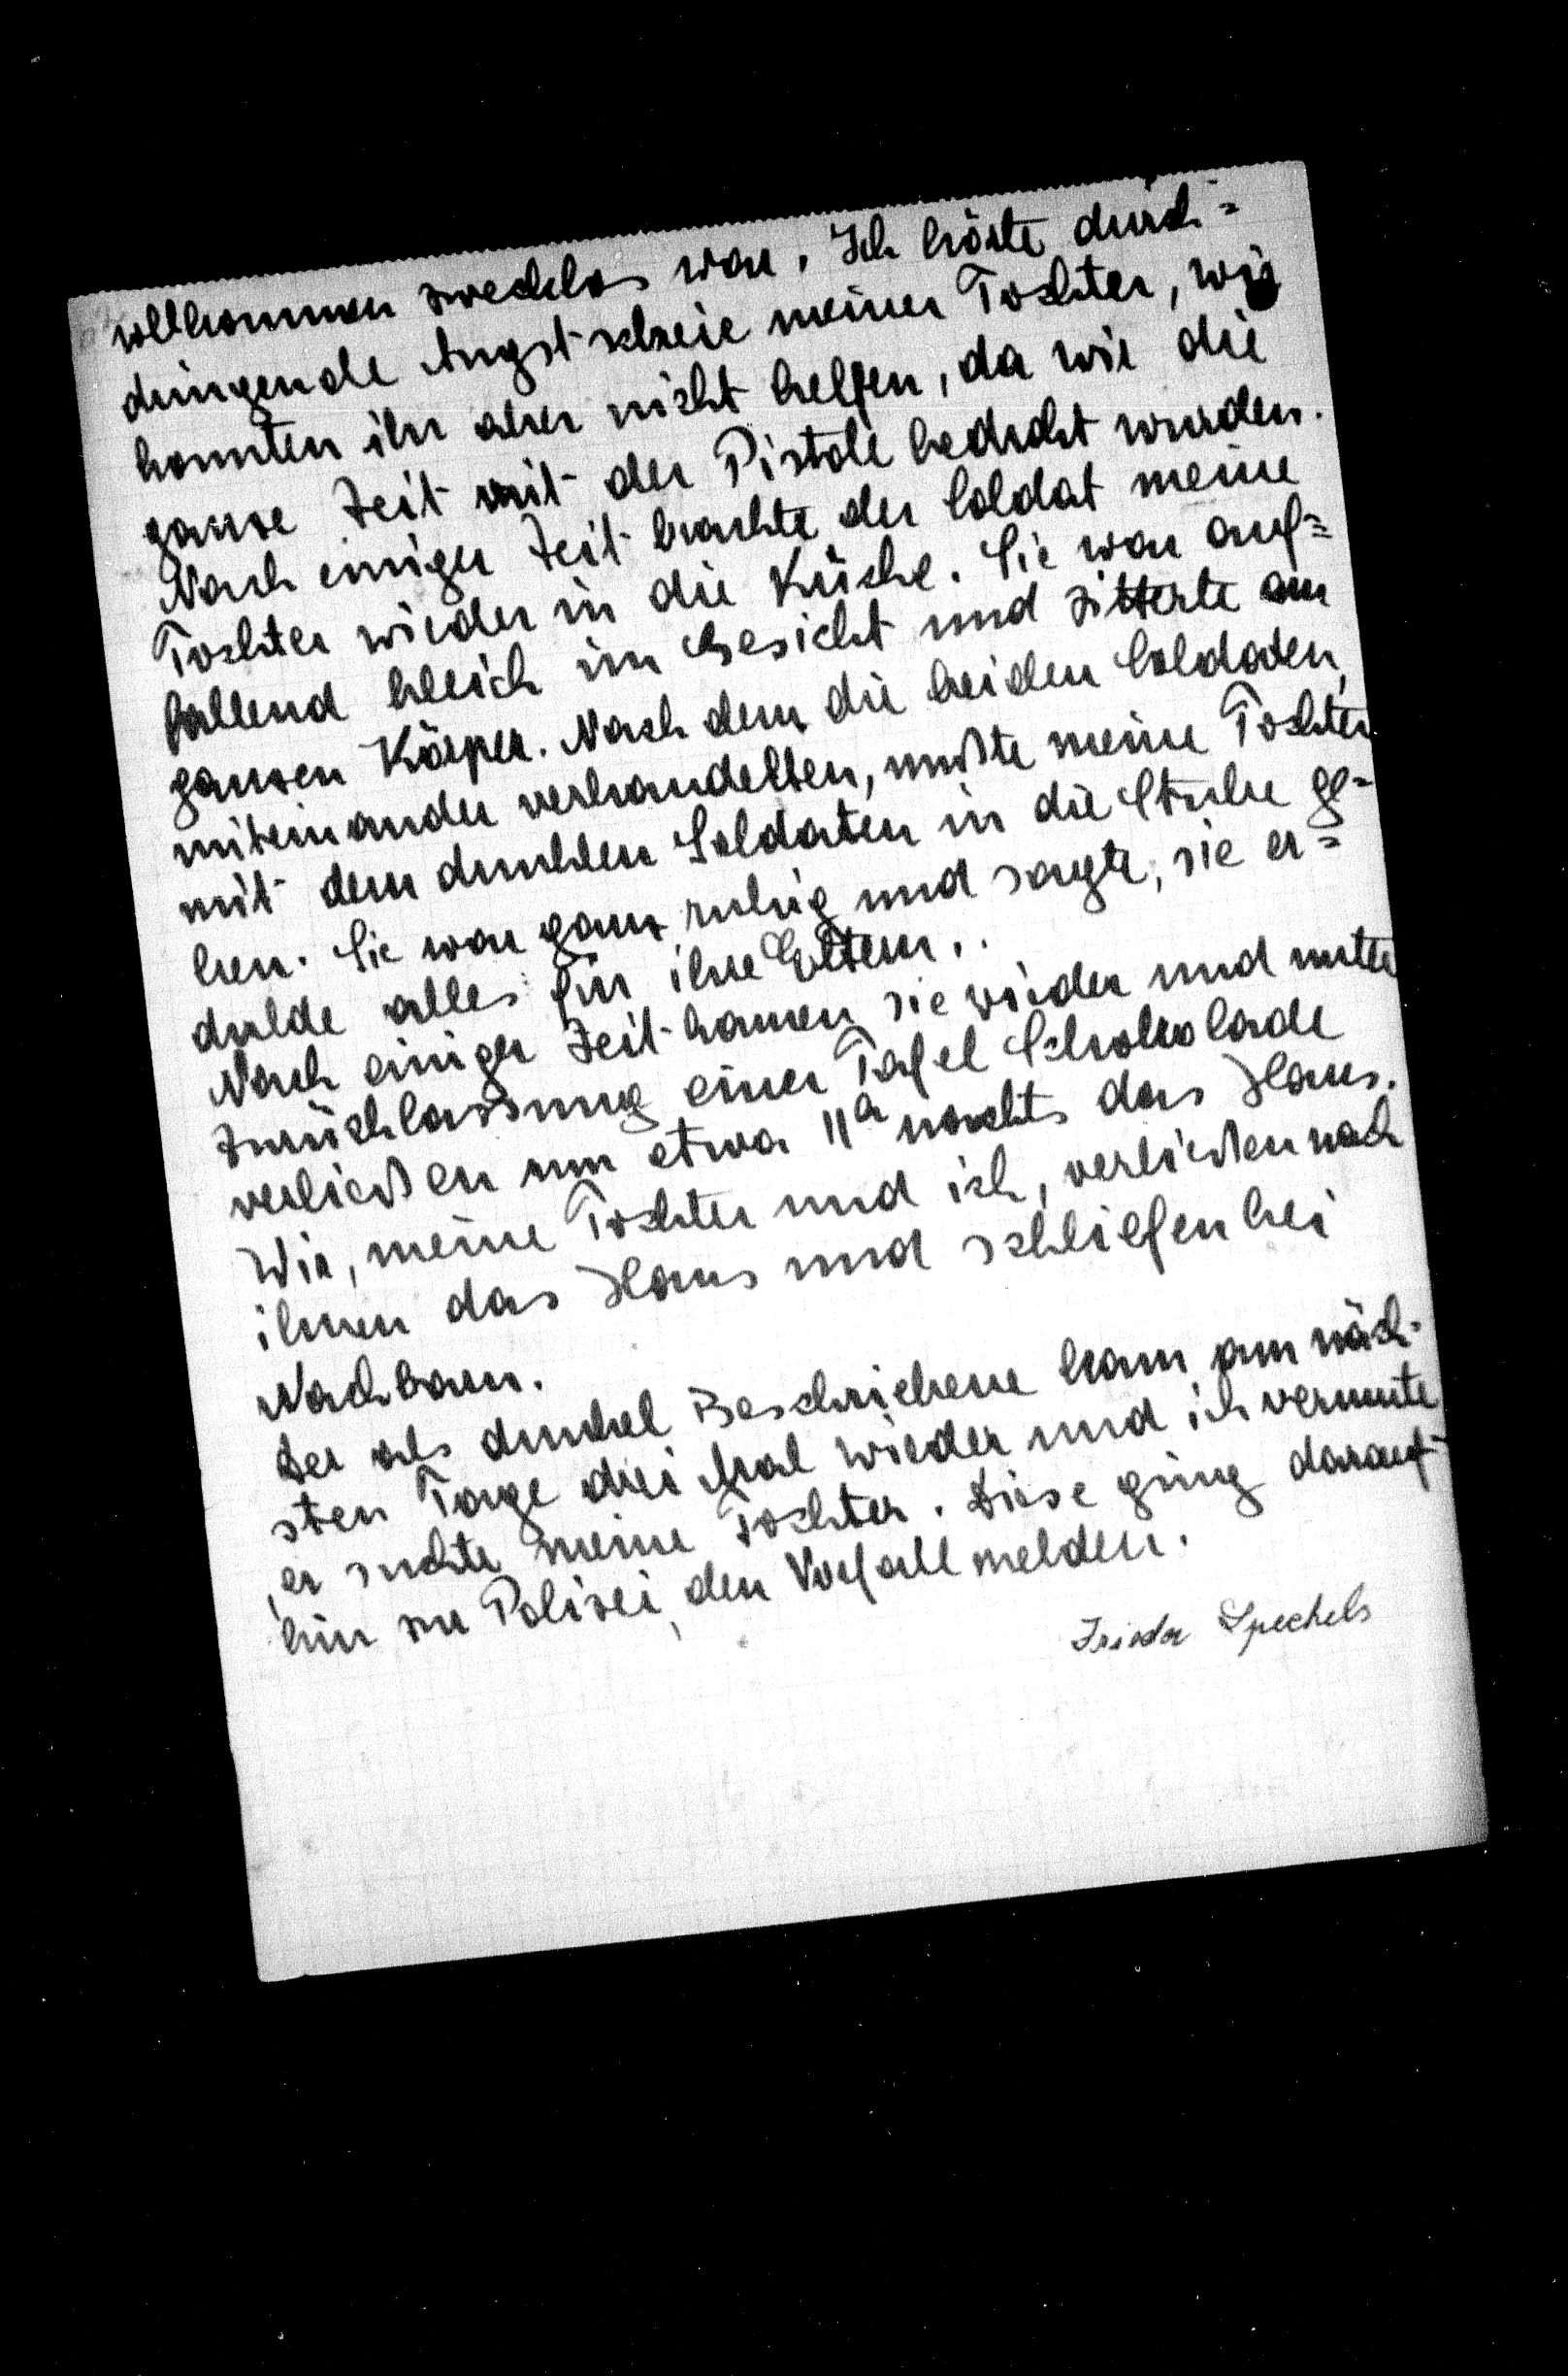 vollkommen zwecklos war. Ich hörte durch=
dringende Angstschreie meiner Tochter, wir
konnten ihr aber nicht helfen, da wir die
ganze Zeit mit der Pistole bedroht wurden.
Nach einiger Zeit brachte der Soldat meine
Tochter wieder in die Küche. Sie war auf=
fallend bleich im Gesicht und zitterte am
ganzen Körper. Nach dem die beiden Soldaten,
miteinander verhandelten, mußte meine Tochter
mit dem dunklen Soldaten in die Stube ge=
hen. Sie war ganz ruhig und sagte, sie er=
dulde alles für ihre Eltern..
Nach einiger Zeit kamen sie wieder und unter
Zurücklassung einer Tafel Schokolade
verließen um etwa 11 a nachts das Haus.
Wir, meine Tochter und ich, verließen nach
ihnen das Haus und schliefen bei
Nachbarn.
Der als dunkel Beschriebene kam am näch-
sten Tage drei Mal wieder und ich vermute
er suchte meine Tochter. Diese ging darauf
hin zu Polizei, den Vorfall melden.
Frieda Speckels